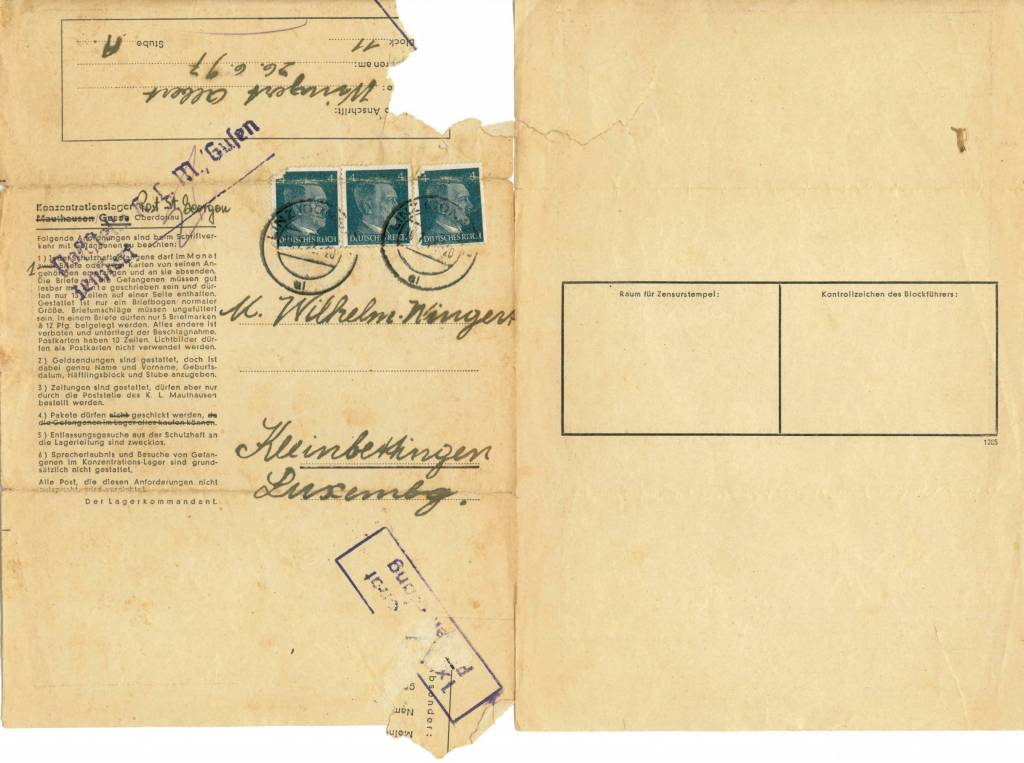 Anschrift:
Wingert Albert
am:
26.6.97
Block 11
Stube A
Postzensur
K.L.M., Gusen
4
4
4
DEUTSCHES REICH
DEUTSCHES REICH
DEUTSCHES REICH
LINZ
al
al
Konzentrationslager Post St. Georgen
Mauthausen/Gusen Oberdonau
Folgende Anordnungen sind beim Schriftver-
kehr mit Gefangenen zu beachten:
1.) Jeder Schutzhaftgefangene darf im Monat
Briefe oder Karten von seinen An-
gehörigen empfangen und an sie absenden.
Die Briefe an die Gefangenen müssen gut
lesbar mit Tinte geschrieben sein und dür-
fen nur 15 Zeilen auf einer Seite enthalten.
Gestattet ist nur ein Briefbogen normaler
Größe. Briefumschläge müssen ungefüttert
sein. In einem Briefe dürfen nur 5 Briefmarken
à 12 Pfg. beigelegt werden. Alles andere ist
verboten und unterliegt der Beschlagnahme.
Postkarten haben 10 Zeilen. Lichtbilder dür-
fen als Postkarten nicht verwendet werden.
2.) Geldsendungen sind gestattet, doch ist
dabei genau Name und Vorname, Geburts-
datum, Häftlingsblock und Stube anzugeben.
3.) Zeitungen sind gestattet, dürfen aber nur
durch die Poststelle des K. L. Mauthausen
bestellt werden.
4.) Pakete dürfen nicht geschickt werden, da
die Gefangenen im Lager alles kaufen können.
5.) Entlassungsgesuche aus der Schutzhaft an
die Lagerleitung sind zwecklos.
6.) Sprecherlaubnis und Besuche von Gefan-
genen im Konzentrations-Lager sind grund-
sätzlich nicht gestattet.
Alle Post, die diesen Anforderungen nicht
entspricht, wird vernichtet.
Der Lagerkommandant.
M. Wilhelm Wingert
Kleinbettingen
Luxembg.
Absender:
Meine
Nam
Raum für Zensurstempel:
Kontrollzeichen des Blockführers:
1205